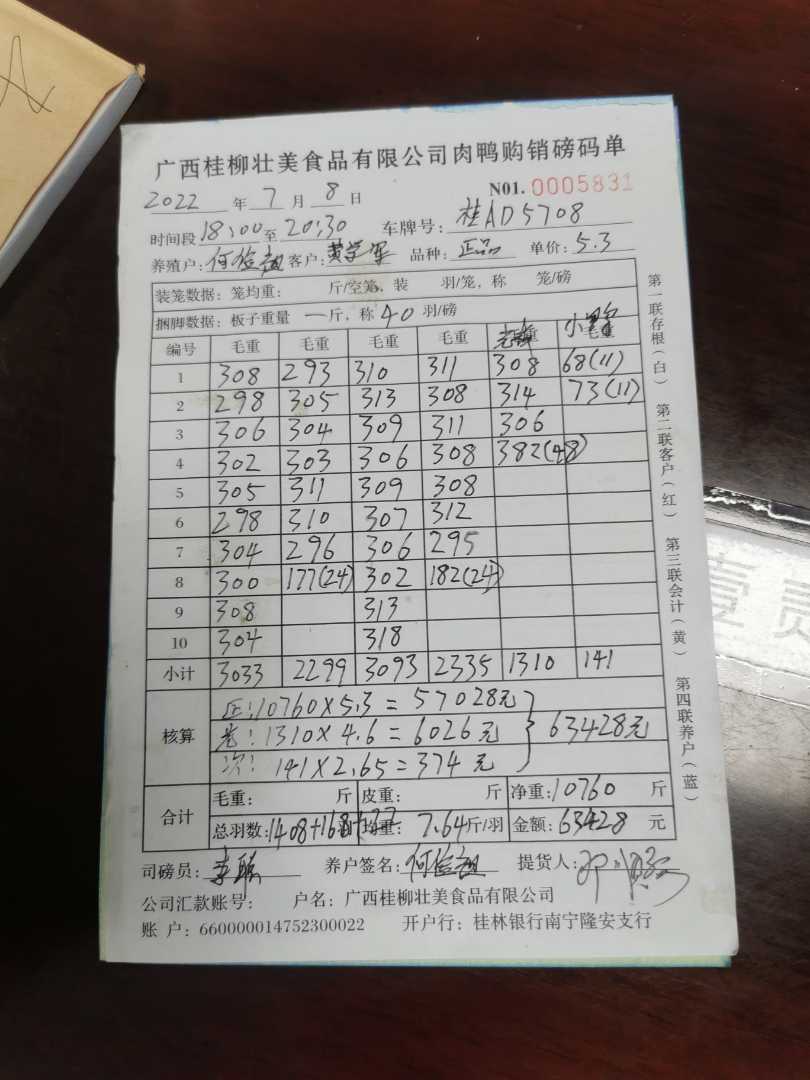 广西桂柳壮美食品有限公司肉鸭购销磅码单
2022 年 7 月 8 日 N01. 0005831
时间段 18:00 至 20:30 车牌号: 桂AD5708
养殖户: 何 客户: 黄学军 品种: 正品 单价: 5.3
装笼数据: 笼均重: 斤/空笼, 装 羽/笼, 称 笼/磅
捆脚数据: 板子重量 一 斤, 称 40 羽/磅
编号 毛重 毛重 毛重 毛重 毛重 毛重
1 308 293 310 311 308 68(11)
2 298 305 313 308 314 73(11)
3 306 304 309 311 306
4 302 303 306 308 382(48)
5 305 311 309 308
6 298 310 307 312
7 304 296 306 295
8 300 177(24) 302 182(24)
9 308 313
10 304 318
小计 3033 2299 3093 2335 1310 141
核算 正:10760×5.3=57028元
1310×4.6=6026元 63428元
次:141×2.65=374元
合计 毛重: 斤 皮重: 斤 净重: 10760 斤
总羽数: 1408+168+ 均重: 7.64 斤/羽 金额: 63428 元
司磅员: 李 养户签名: 何 提货人:
公司汇款账号: 户名: 广西桂柳壮美食品有限公司
账 户: 660000014752300022 开户行: 桂林银行南宁隆安支行
第一联存根(白) 第二联客户(红) 第三联会计(黄) 第四联养户(蓝)
壹 责